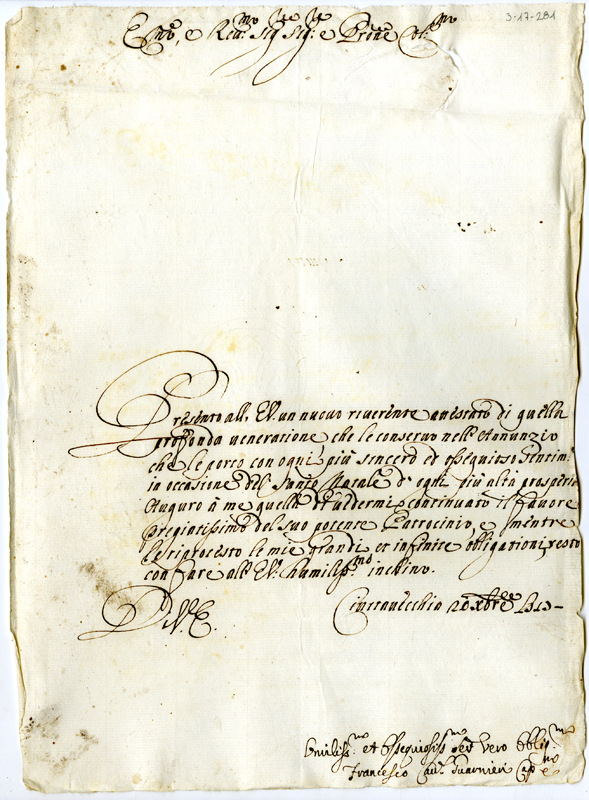 3-17-281
Em̃o, e Reu.mo Sig.re Sig.re e Pr̃one Col.mo
Presento all' E.V. un nuovo riuerente attestato di quella
profonda ueneratione che le conseruo nell' Annunzio
che le porgo con ogni più sincero ed ossequioso sentim.
in occasione del Santo Natale d' ogni più alta prosperit
Auguro à me quella di uedermi continuato il fauore
pregiatissimo del suo potente Patrocinio, e mentre
le riprotesto le mie grandi et infinite obligationi, resto
con fare all' E.V. humiliss.mo inchino.
Di V.E.
Ciuitauecchia 20 Xbre
Umiliss.mo et Ossequiosiss.mo Ser.e Vero Oblig.mo
Francesco Cau.r Guarnieri Cap.no